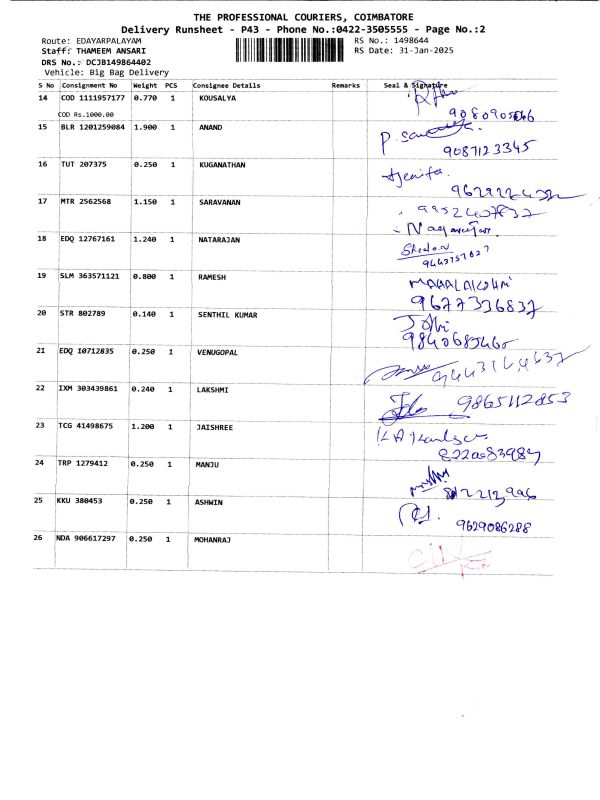 THE PROFESSIONAL COURIERS, COIMBATORE
Delivery Runsheet - P43 - Phone No.:0422-3505555 - Page No.:2
Route: EDAYARPALAYAM RS No.: 1498644
Staff: THAMEEM ANSARI RS Date: 31-Jan-2025
DRS No.: DCJB149864402
Vehicle: Big Bag Delivery
S No Consignment No Weight PCS Consignee Details Remarks Seal & Signature
14 COD 1111957177 0.770 1 KOUSALYA
COD Rs.1000.00
15 BLR 1201259084 1.900 1 ANAND
9087123345
16 TUT 207375 0.250 1 KUGANATHAN
Ajenifa.
17 MTR 2562568 1.150 1 SARAVANAN
18 EDQ 12767161 1.240 1 NATARAJAN
19 SLM 363571121 0.800 1 RAMESH
MAHALAKSHMI
9677336837
20 STR 802789 0.140 1 SENTHIL KUMAR
9840685460
21 EDQ 10712835 0.250 1 VENUGOPAL
9443164637
22 IXM 303439861 0.240 1 LAKSHMI
9865112853
23 TCG 41498675 1.200 1 JAISHREE
24 TRP 1279412 0.250 1 MANJU
25 KKU 380453 0.250 1 ASHWIN
9629086288
26 NDA 906617297 0.250 1 MOHANRAJ